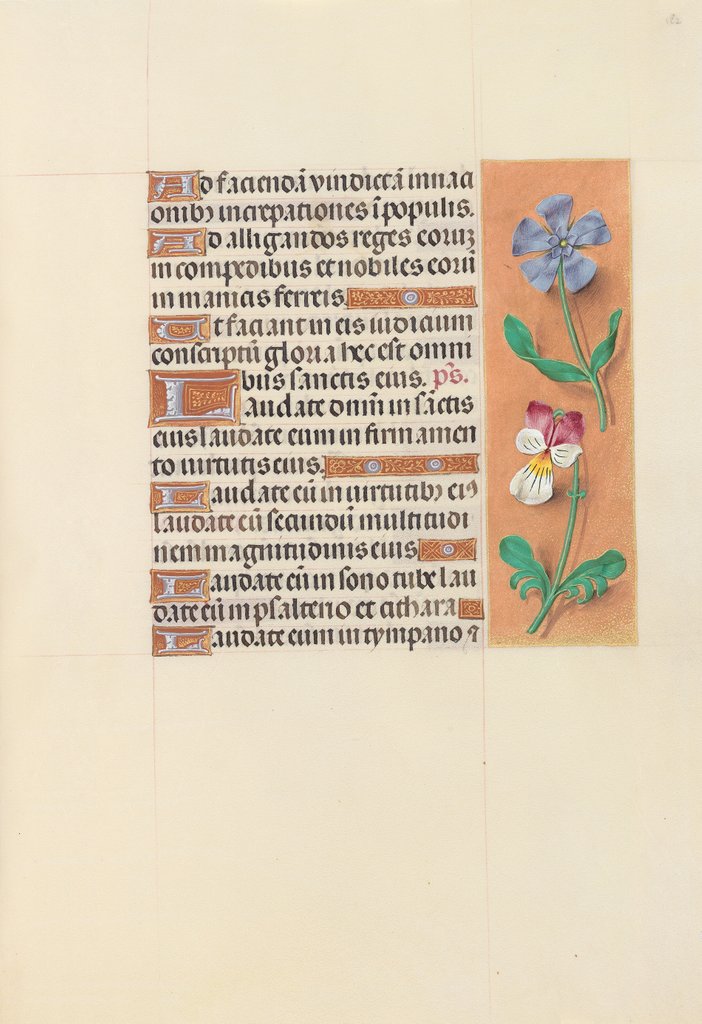 182
Ad faciendā vindictā in naci
onibꝫ increpationes ī populis.
Ad alligandos reges eorūꝫ
in compedibus et nobiles eorū
in manicis ferreis.
Ut faciant in eis iudicium
conscriptū gloria hec est omni
bus sanctis eius. ps.
Laudate dnm̄ in sāctis
eius laudate eum in firmamen
to virtutis eius.
Laudate eū in virtutibꝫ eiꝰ
laudate eū secundū multitudi
nem magnitudinis eius
Laudate eū in sono tube lau
date eū in psalterio et cithara
Laudate eum in tympano ⁊